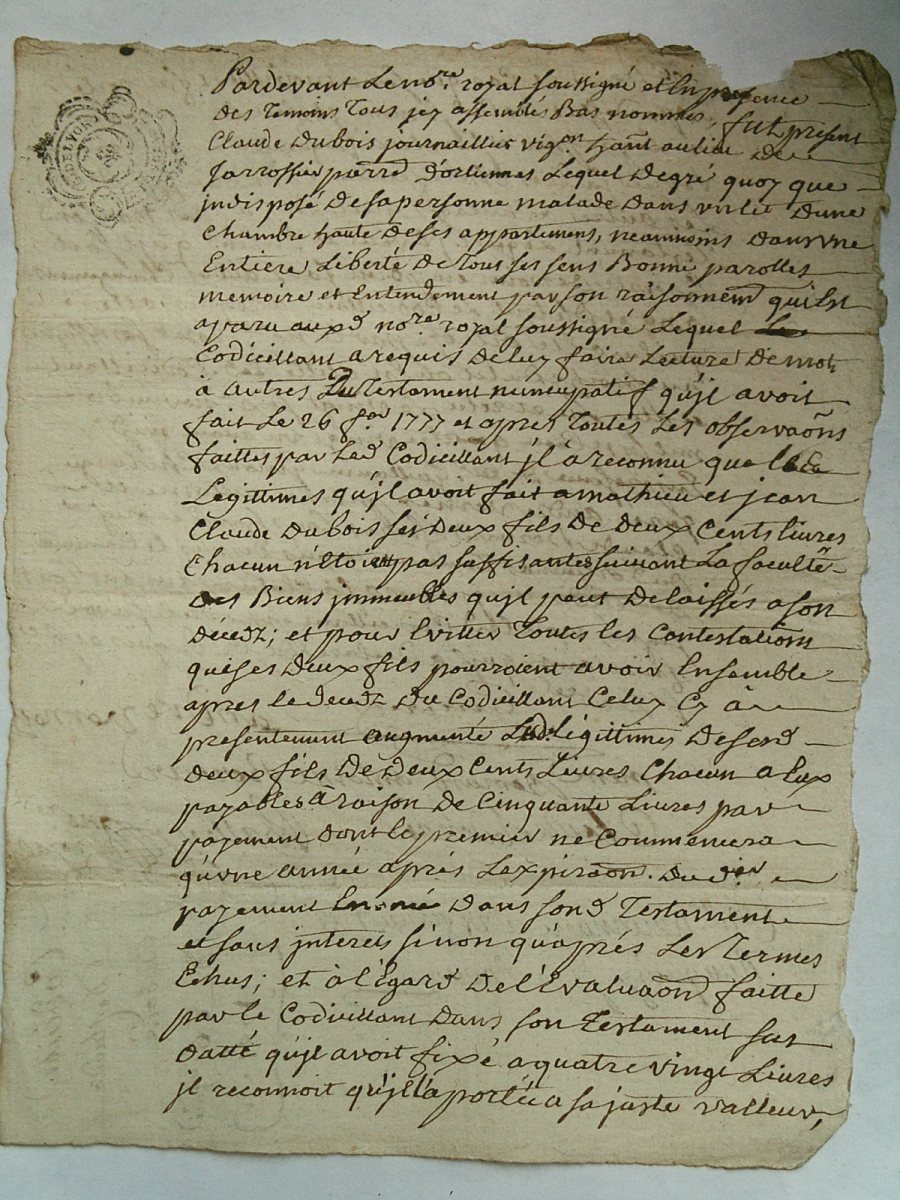 Pardevant Le no.re royal soussigné et En presence
Des Temoins Tous jcy assemblés Bas nommés, fut present
Claude Dubois journaillier vig.on hant au lieu De
Jarrossier parr.e D'ortiennes Lequel Degré quoy que
jndisposé De sa personne malade Dans un lit Dune
Chambre haute De ses appartemens, neanmoins Dans une
Entiere Liberté De tous ses sens Bonne parolles
memoire et Entendement par son raisonnem.t qui Est
aparu aux d. no.re royal soussigné Lequel
Codicillant a requis De luy faire Lecture De mot
à autres Du Testament nuncupatif qu'jl avoit
fait Le 26 f.er 1777 et apres Toutes Les observaõns
faittes par Led. Codicillant jl a reconnu que les
Legittimes qu'jl avoit fait a mathieu et jean
Claude Dubois ses Deux fils De Deux Cents Livres
Chacun n'Etoient pas suffisantes suivant La faculté
Des Biens jmmeubles qu'jl peut Delaissés a son
Décedz; et pour Evitter Toutes les Contestations
que ses Deux fils pourroient avoir Ensemble
apres le Decedz Du Codicillant Celuy Cy à
presentement augmenté Lesd. Légittimes De sesd.
Deux fils De Deux Cents Livres Chacun a Eux
payables à raison De Cinquante Livres par
payement Dont le premier ne Commencera
qu'une année aprés L'expiraõn. Du d.ier
payement Enoncé Dans sond. Testament
et sans jnterets sinon qu'aprés Les Termes
Echus; et à l'Egard De l'Evaluaõn faitte
par le Codicillant Dans son Testament sus
Datté qu'jl avoit fixé a quatre vingt Livres
jl reconnoit qu'jl l'a portée a sa juste valleur,